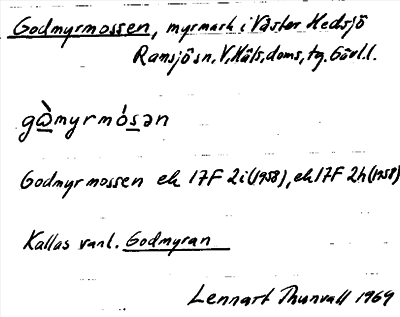 Godmyrmossen, myrmark i Väster Hedsjö
Ramsjö sn, V, Häls, doms, tg. Gävl.l.
gɷ̀myrmósən
Godmyrmossen ek 17F 2i (1958), ek 17F 2h (1958)
Kallas vanl. Godmyran
Lennart Thunvall 1969